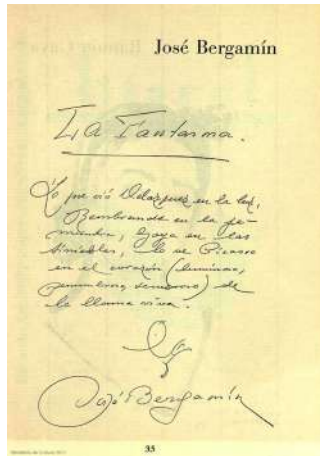 José Bergamín
La Fantasma.
Lo que vió Velázquez en la luz,
Rembrandt en la pe-
numbra, Goya en las
tinieblas, lo ve Picasso
en el corazón (luminoso,
penumbroso, ) de
la llama viva.
José Bergamín
35